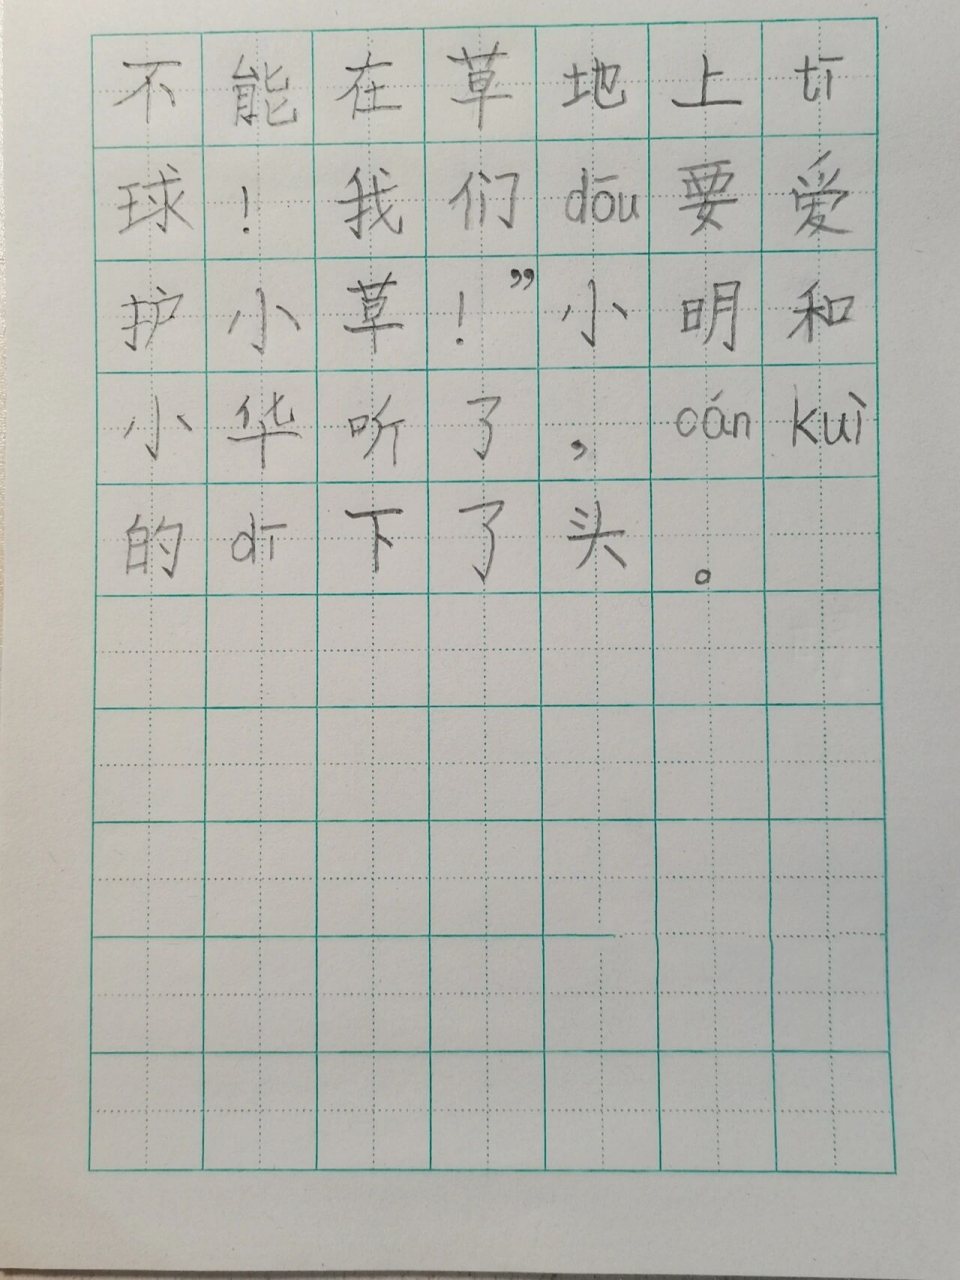 不能在草地上tī
球！我们dōu要爱
护小草！”小明和
小华听了，cánkuì
的dī下了头。